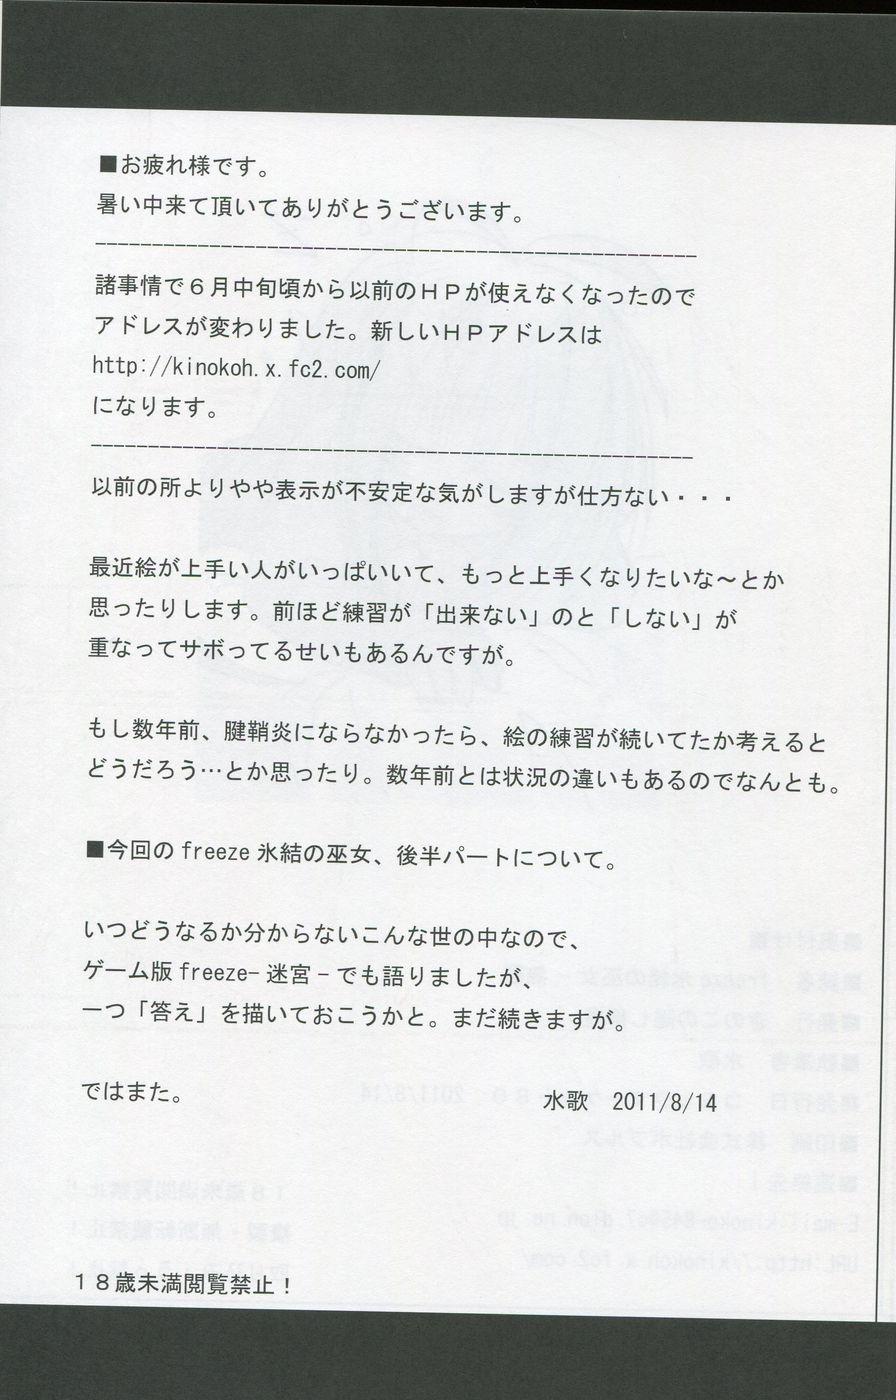 ■お疲れ様です。
暑い中来て頂いてありがとうございます。
諸事情で６月中旬頃から以前のＨＰが使えなくなったので
アドレスが変わりました。新しいＨＰアドレスは
http://kinokoh.x.fc2.com/
になります。
以前の所よりやや表示が不安定な気がしますが仕方ない・・・
最近絵が上手い人がいっぱいいて、もっと上手くなりたいな～とか
思ったりします。前ほど練習が「出来ない」のと「しない」が
重なってサボってるせいもあるんですが。
もし数年前、腱鞘炎にならなかったら、絵の練習が続いてたか考えると
どうだろう…とか思ったり。数年前とは状況の違いもあるのでなんとも。
■今回の freeze 氷結の巫女、後半パートについて。
いつどうなるか分からないこんな世の中なので、
ゲーム版 freeze－迷宮－でも語りましたが、
一つ「答え」を描いておこうかと。まだ続きますが。
ではまた。
水歌　2011/8/14
１８歳未満閲覧禁止！